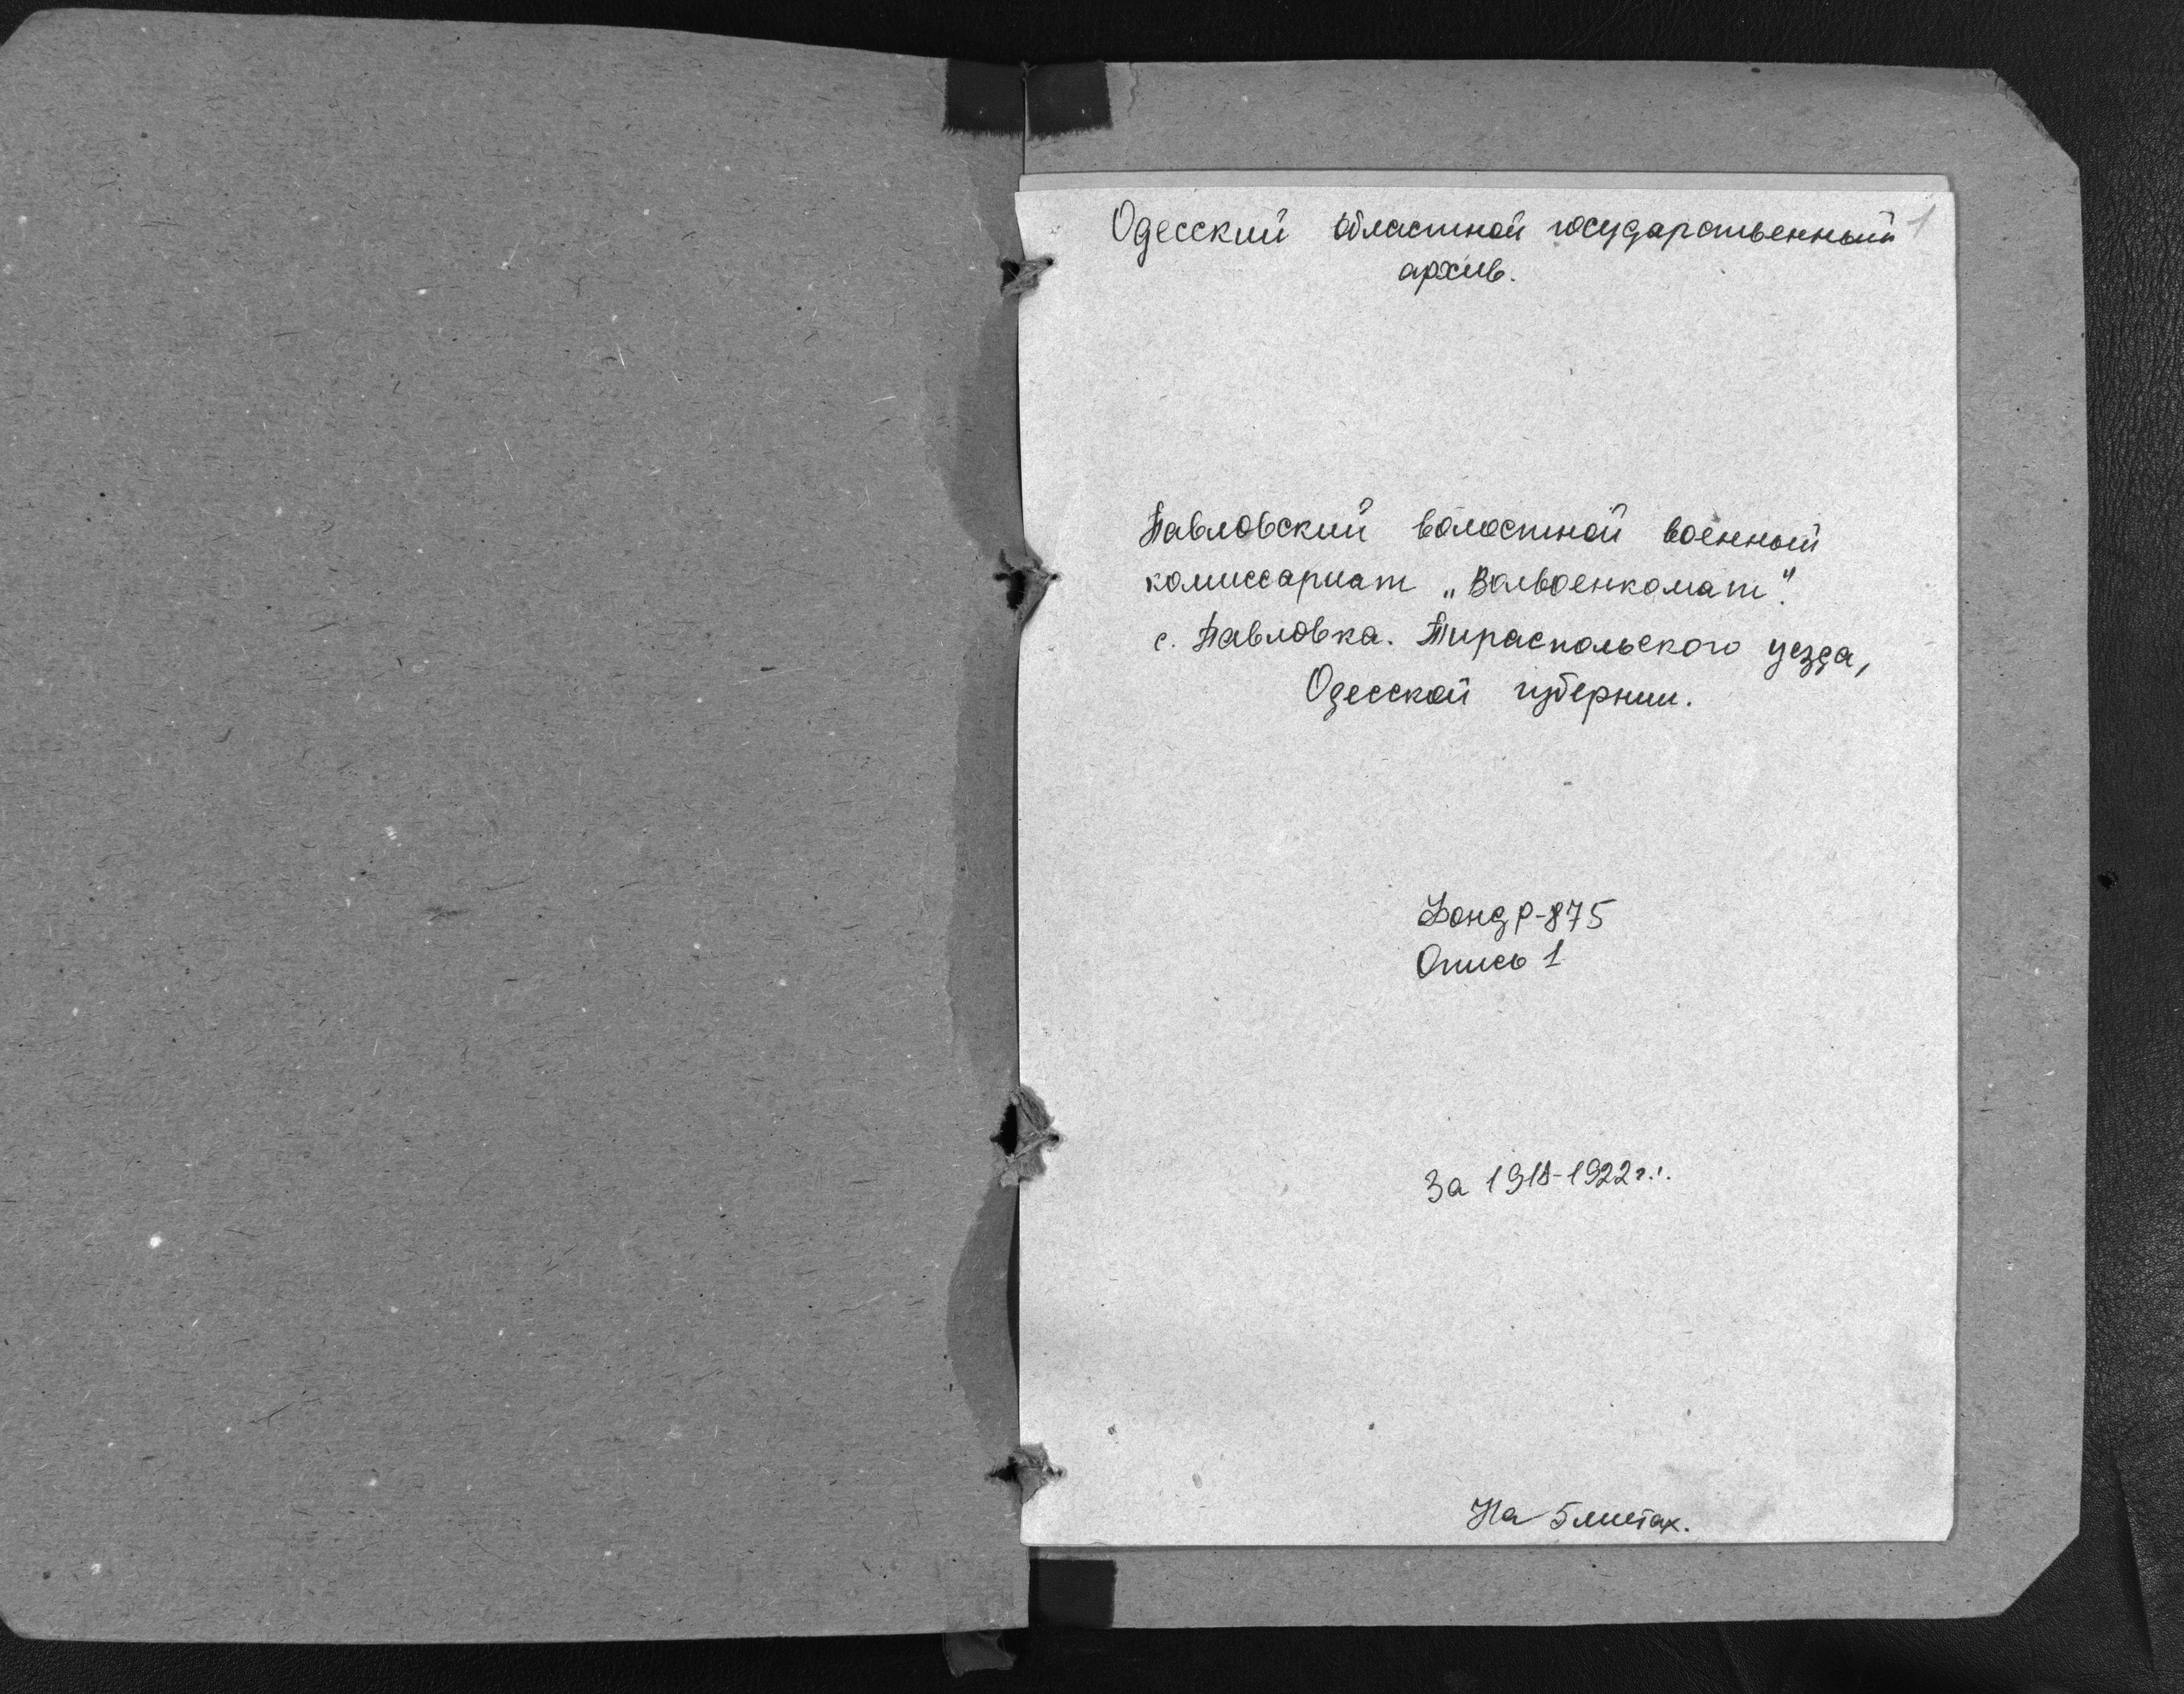 Одесский областной государственный 1
архив.
Павловский волостной военный
комиссариат „Волвоенкомат".
с. Павловка. Тираспольского уезда,
Одесской губернии.
Фонд Р-875
Опись 1
За 1918-1922 г.г.
На 5 листах.